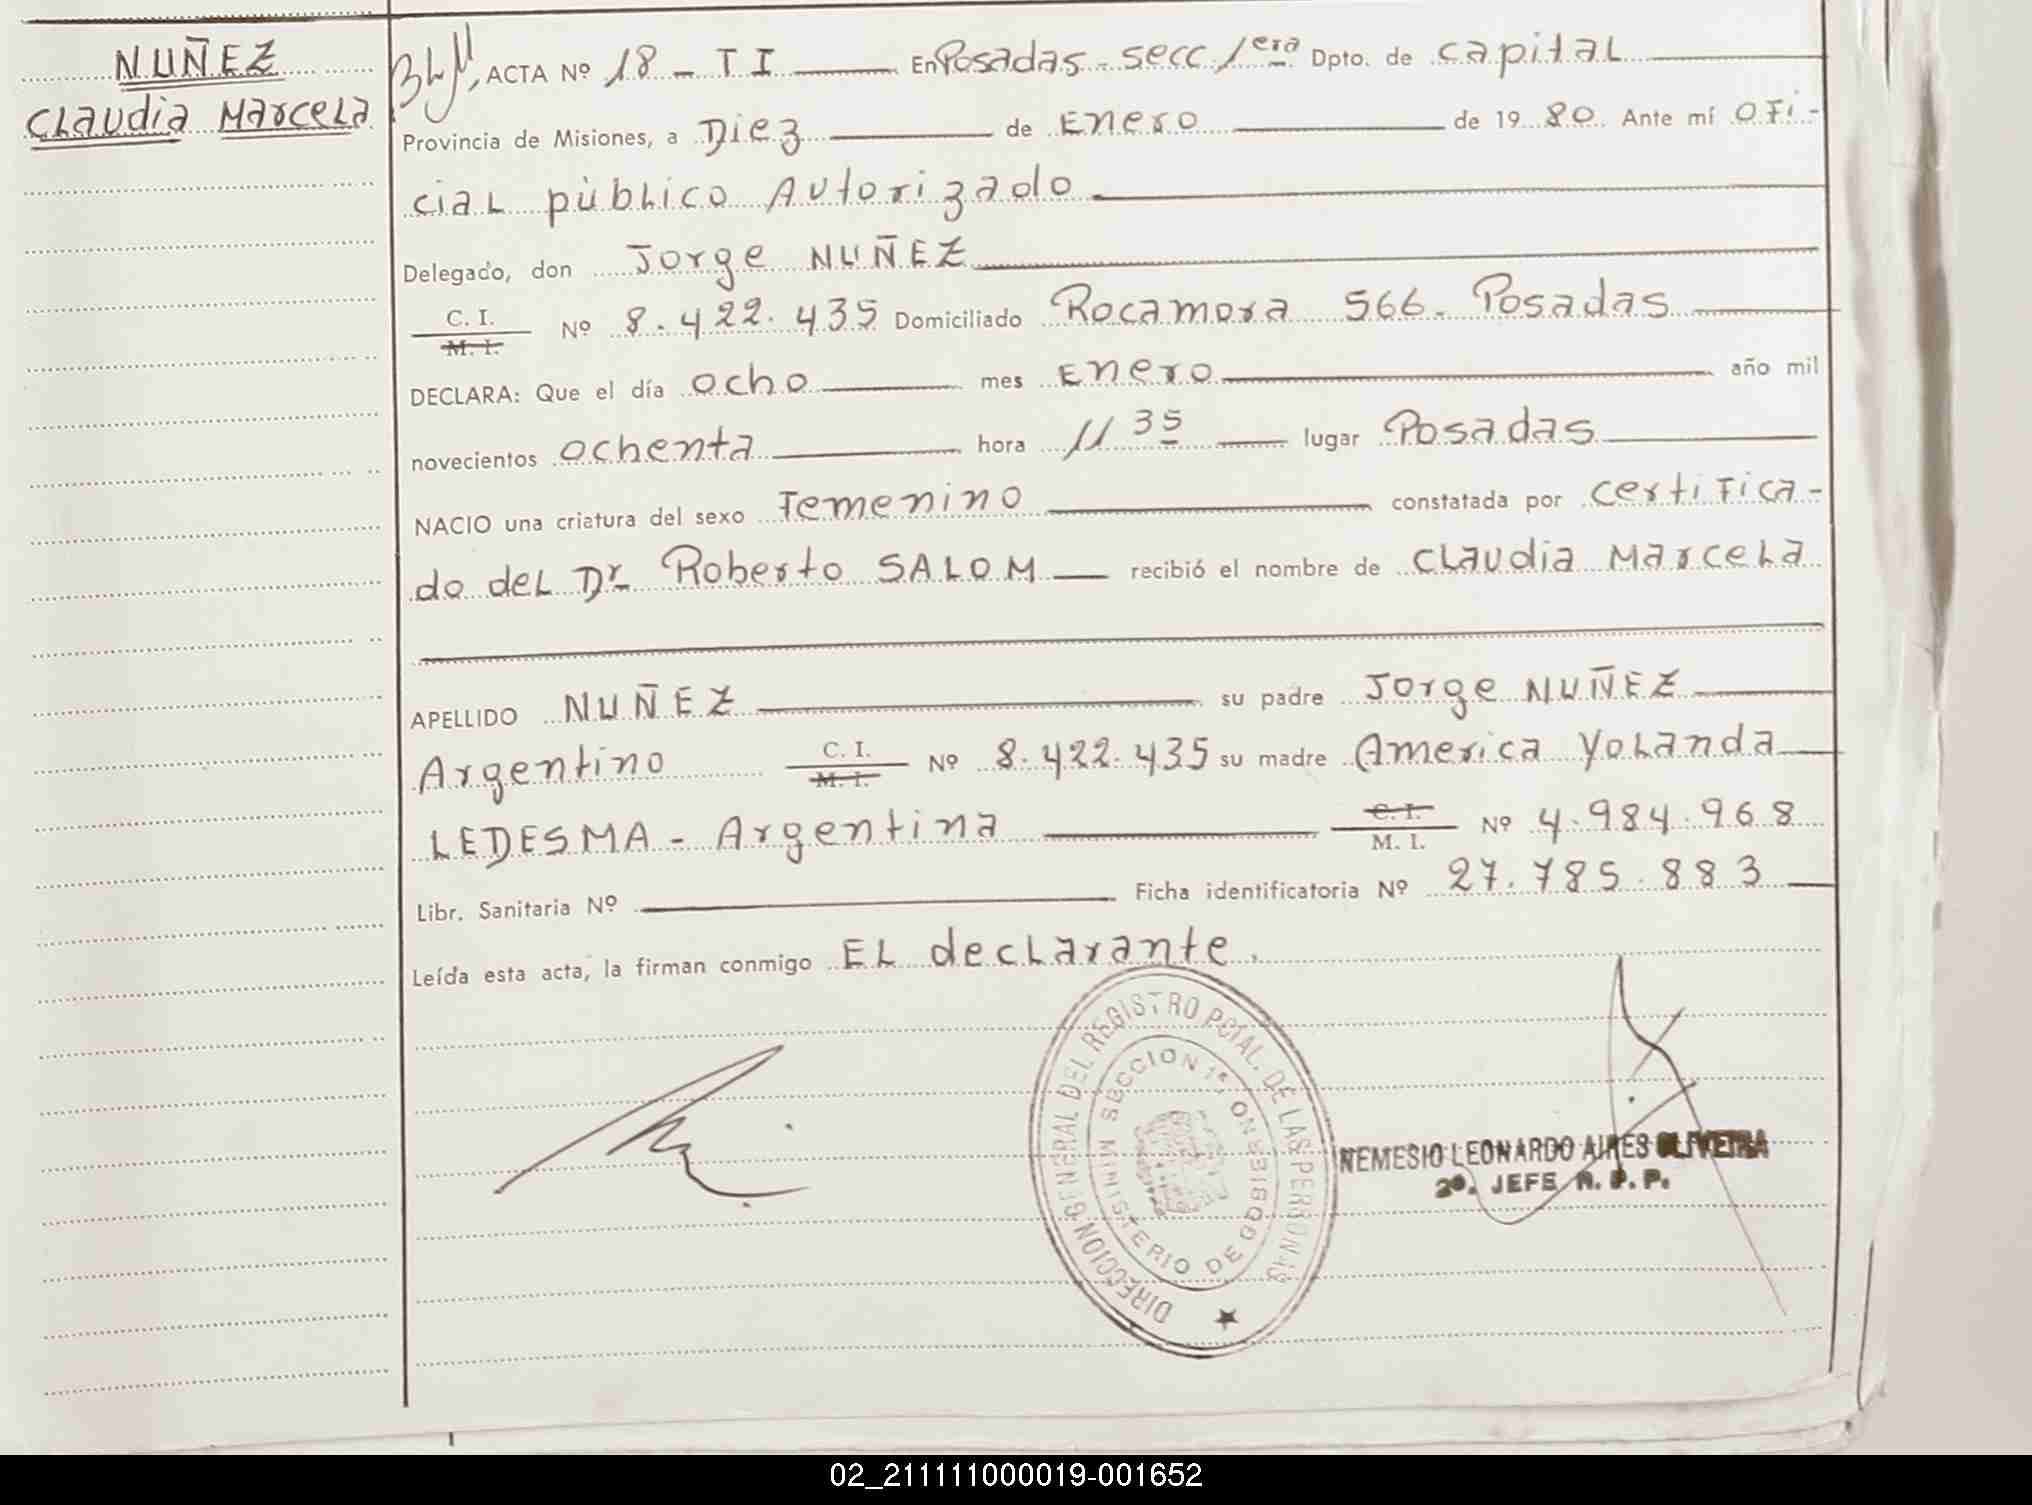 NUÑEZ
Claudia Marcela
ACTA Nº 18 - T I En Posadas - secc. 1era Dpto. de capital
Provincia de Misiones, a Diez de Enero de 1980. Ante mí ofi-
cial público Autorizado
Delegado, don Jorge NUÑEZ
C. I.
M. I.
Nº 8.422.435 Domiciliado Rocamora 566 - Posadas
DECLARA: Que el día ocho mes Enero año mil
novecientos ochenta hora 11 35 lugar Posadas
NACIO una criatura del sexo femenino constatada por certifica-
do del Dr Roberto SALOM recibió el nombre de Claudia Marcela
APELLIDO NUÑEZ su padre Jorge NUÑEZ
Argentino C. I. M. I. Nº 8.422.435 su madre America Yolanda
LEDESMA - Argentina C. I. M. I. Nº 4.984.968
Libr. Sanitaria Nº Ficha identificatoria Nº 27.785.883
Leída esta acta, la firman conmigo EL declarante.
DIRECCION GENERAL DEL REGISTRO PCIAL. DE LAS PERSONAS
SECCION 1ª
MINISTERIO DE GOBIERNO
NEMESIO LEONARDO AIRES OLIVEIRA
2º. JEFE R. P. P.
02_211111000019-001652